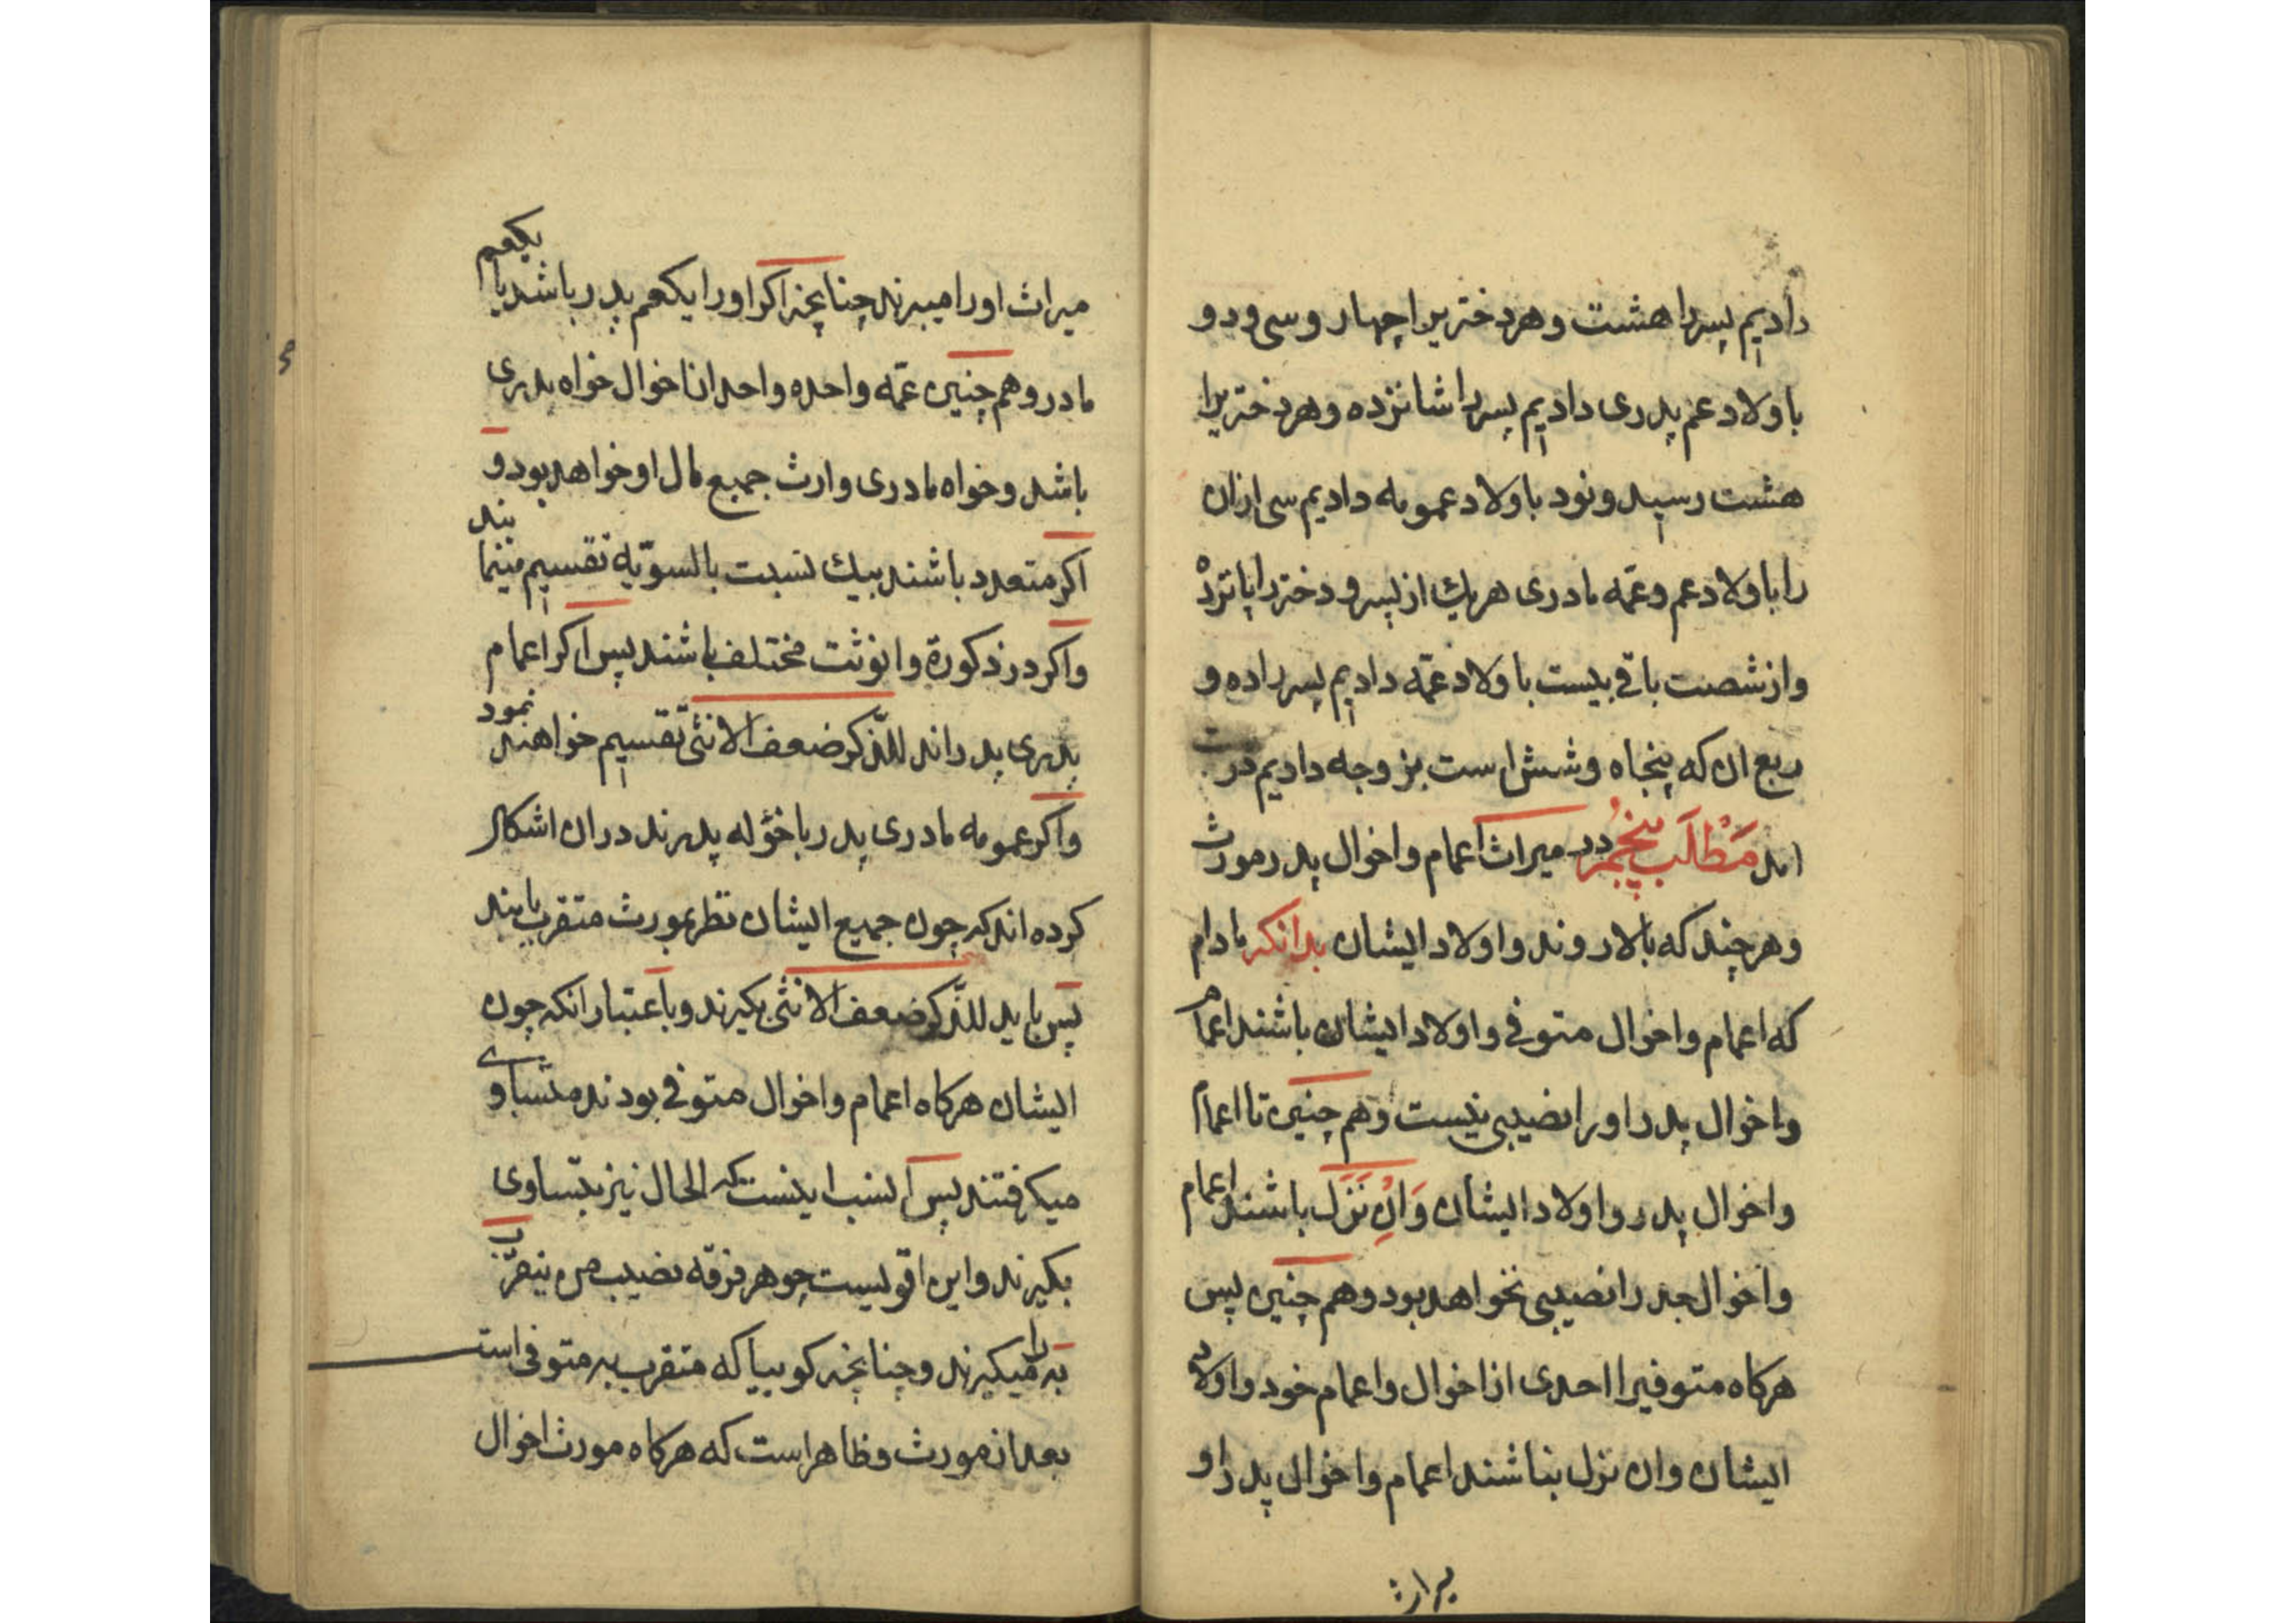 دادیم پسررا هشت و هر دختریرا چهار و سی و دو
باولاد عم پدری دادیم پسررا شانزده و هر دختریرا
هشت رسید و نود باولاد عمومه دادیم سی ازان
را باولاد عم و عمّه مادری هریك از پسر و دختررا پانزده
و از شصت باقی بیست باولاد عمّه دادیم پسررا ده و
ربع ان که پنجاه و شش است بزوجه دادیم
اند مَطْلَب پنجُم در میراث اعمام و اخوال پدر مورث
و هر چند که بالا روند و اولاد ایشان بدانکه مادام
که اعمام و اخوال متوفی و اولاد ایشان باشند اعمام
و اخوال پدر اورا نصیبی نیست و هم چنین تا اعمام
و اخوال پدر و اولاد ایشان وَاِنْ نَزَلَ باشند اعمام
و اخوال جدرا نصیبی نخواهد بود و هم چنین پس
هرکاه متوفیرا احدی از اخوال و اعمام خود و اولاد
ایشان وان نزل نباشند اعمام و اخوال پدر او
میراث
میراث اورا میبرند چنانچه اکر اورا یکعم پدر باشد یا یکعم
مادر و هم چنین عمّه واحده و احد انا خوال خواه پدری
باشد و خواه مادری وارث جمیع مال او خواهد بود و
اکر متعدد باشند بیك نسبت بالسوّیه تقسیم مینمایند
و اکر در ذکورة و انوثت مختلف باشند پس اکر اعمام
پدری پدراند للذّکر ضعف الانثیّ تقسیم خواهند نمود
و اکر عمومه مادری پدر یا خؤله پدرند دران اشکال
کرده اند که چون جمیع ایشان نظر بمورث متقرب بابند
پس باید للذّکر ضعف الانثی بکیرند و باعتبار انکه چون
ایشان هرکاه اعمام و اخوال متوفی بودند متساوی
میکرفتند پس انسب اینست که الحال نیز بتساوی
بکیرند و این اقویست چو هر فرقه نصیب من یتقرّب
به را میکیرند و چنانچه کوییا که متقرب به متوفی است
بعد از مورث و ظاهر است که هرکاه مورث اخوال